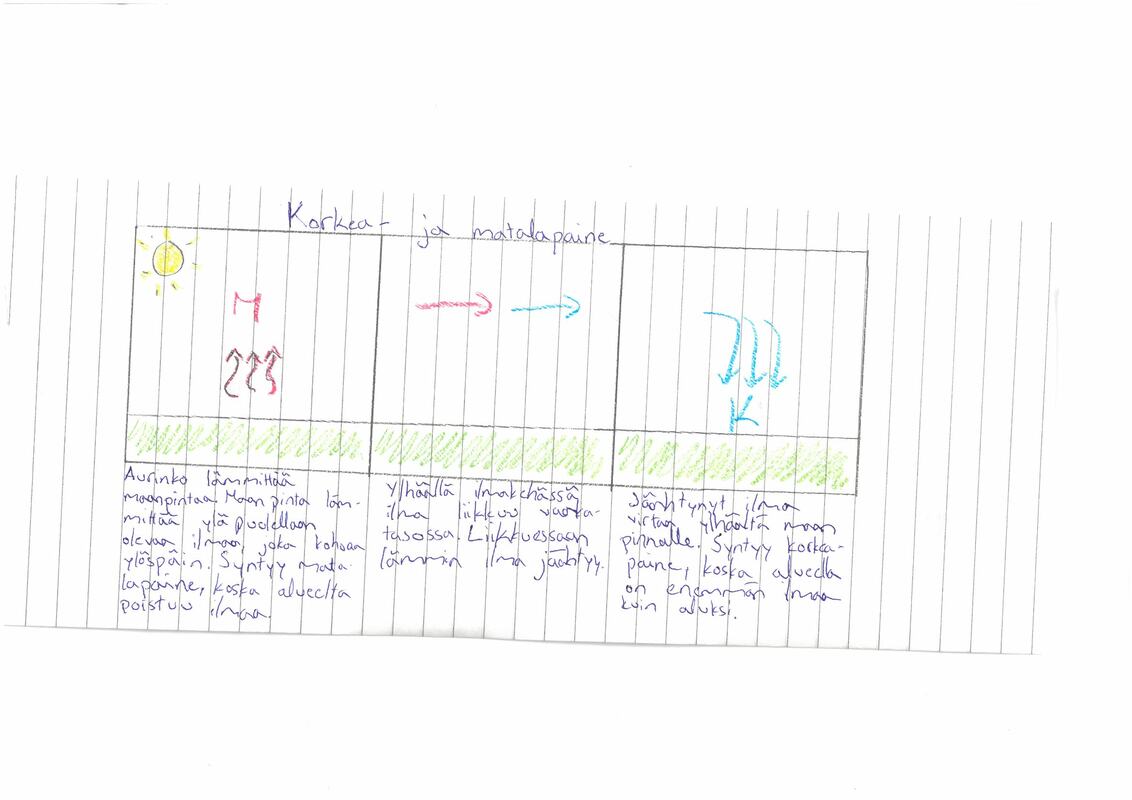 Korkea- ja matalapaine
M
K
Aurinko lämmittää
maanpintaa. Maanpinta läm-
mittää yläpuolellaan
olevaa ilmaa, joka kohoaa
ylöspäin. Syntyy mata-
lapaine, koska alueelta
poistuu ilmaa.
Ylhäällä ilmakehässä
ilma liikkuu vaaka-
tasossa. Liikkuessaan
lämmin ilma jäähtyy.
Jäähtynyt ilma
virtaa ylhäältä maan
pinnalle. Syntyy korkea-
paine, koska alueella
on enemmän ilmaa
kuin aluksi.